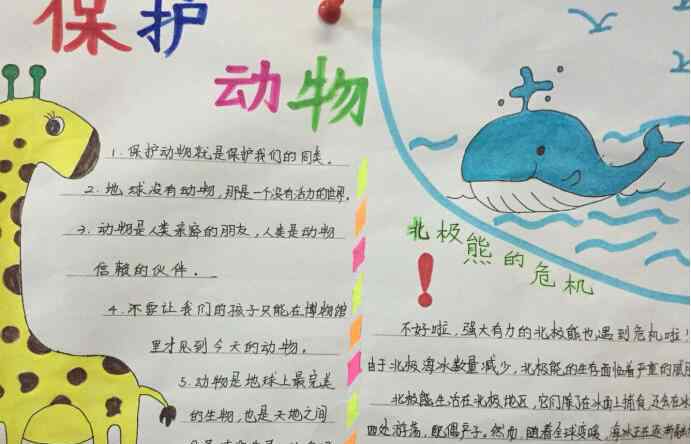 保护
动物
1. 保护动物就是保护我们的同类。
2. 地球没有动物，那是一个没有活力的世界。
3. 动物是人类亲密的朋友，人类是动物
信赖的伙伴。
4. 不要让我们的孩子只能在博物馆
里才见到今天的动物。
5. 动物是地球上最完美
的生物，也是天地之间
北极熊的危机
不好啦，强大有力的北极熊也遇到危机啦！
由于北极海冰数量减少，北极熊的生存面临着严重的威胁
北极熊生活在北极地区，它们除了在冰面上捕食，还会在冰
四处游荡，然而，随着全球变暖，海冰正在逐渐